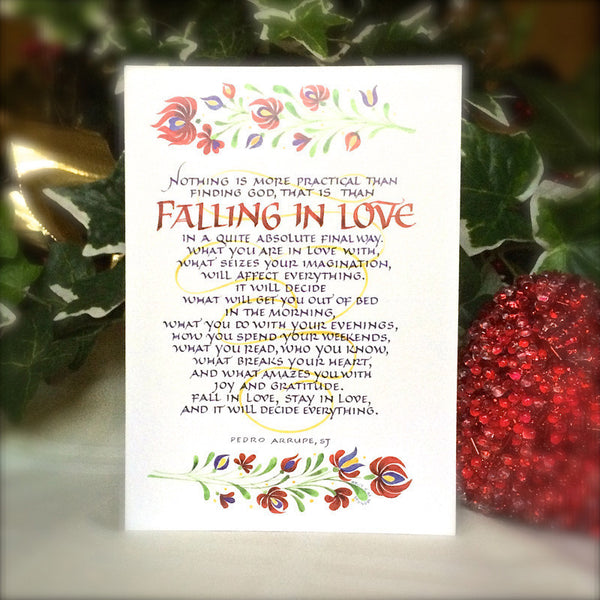 NOTHING IS MORE PRACTICAL THAN
FINDING GOD, THAT IS THAN
FALLING IN LOVE
IN A QUITE ABSOLUTE FINAL WAY.
WHAT YOU ARE IN LOVE WITH,
WHAT SEIZES YOUR IMAGINATION,
WILL AFFECT EVERYTHING.
IT WILL DECIDE
WHAT WILL GET YOU OUT OF BED
IN THE MORNING,
WHAT YOU DO WITH YOUR EVENINGS,
HOW YOU SPEND YOUR WEEKENDS,
WHAT YOU READ, WHO YOU KNOW,
WHAT BREAKS YOUR HEART,
AND WHAT AMAZES YOU WITH
JOY AND GRATITUDE.
FALL IN LOVE, STAY IN LOVE,
AND IT WILL DECIDE EVERYTHING.
PEDRO ARRUPE, SJ